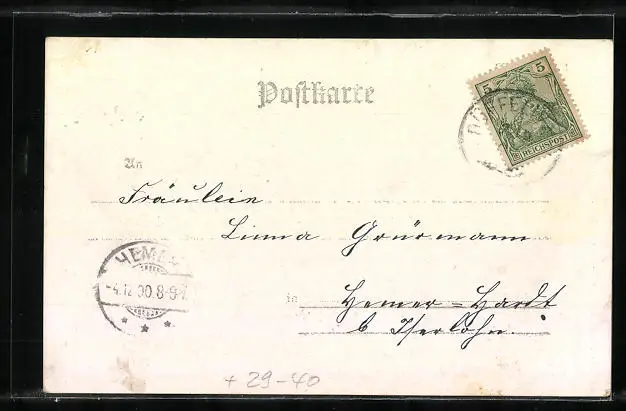 Postkarte
5 5
REICHSPOST
An
Fräulein
Linna Grürmann
in Hemer-Hardt
b Iserlohn.
HEME
-4.12.00.8-9
+ 29-40